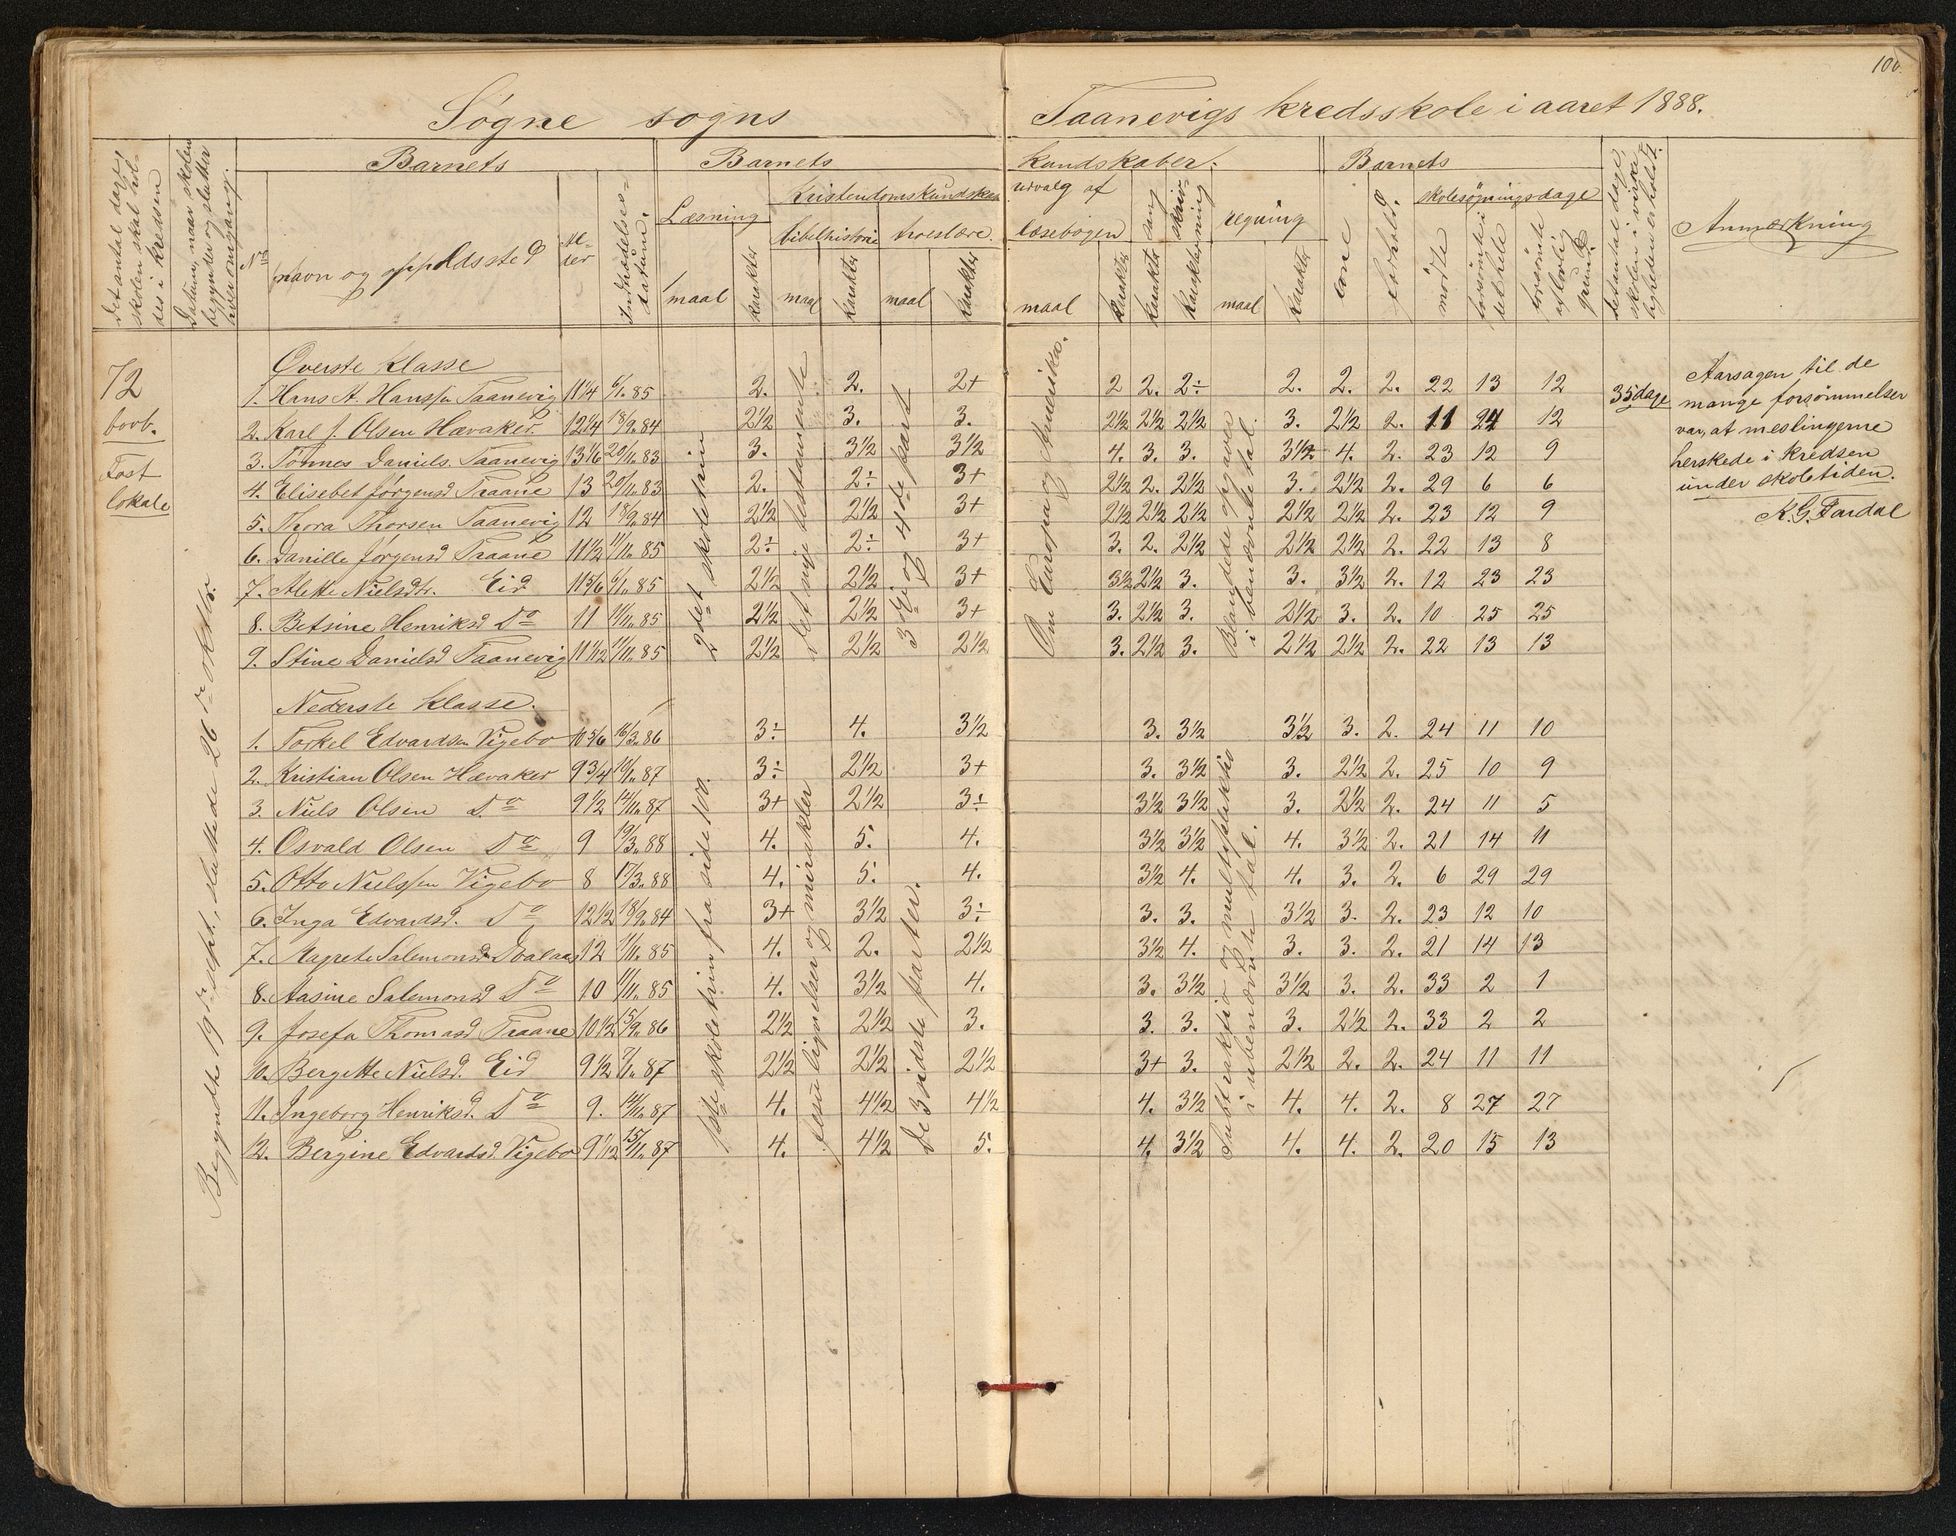 100.
Søgne sogns
Taanevigs kredsskole i aaret 1888.
Det antal dage, skolen skal holdes i kredsen
Datum, naar skolen begynder og slutter hver omgang.
Barnets
No
navn og opholdssted
Alder
Indtrædelsesdatum.
Barnets
kundskaber.
Læsning
maal
karakter
Kristendomskundskab
bibelhistorie
maal
karakter
troeslære.
maal
karakter
udvalg af
læsebogen
maal
karakter
sang
karakter
skrivning
karakter
regning
maal
karakter
Barnets
evne
forhold.
skolesøgningsdage
mødte
forsømte i det hele
forsømte af lovlig grund
Det antal dage, skolen i virkeligheden er holdt.
Anmærkning
72
bovb.
Fast
lokale
Begyndte 19de sept., sluttede 26de oktbr.
Øverste klasse
1. Hans A. Hanssen Taanevig 11 1/4 6/1.85 2. 2. 2+ 2 2. 2÷ 2. 2. 2. 22 13 12
2. Karl J. Olsen Hævaker. 12 1/4 18/9.84 2½ 3. 3. 2½ 2½ 2½ 3. 2½ 2. 11 24 12
3. Tønnes Daniels. Taanevig 13 1/6 20/11.83 3. 3½ 3½ 4. 3. 3. 3½ 4. 2. 23 12 9
4. Elisebet Jørgensd Traane 13 20/11.83 2. 2÷ 3+ 2½ 2. 2½ 3. 2½ 2. 29 6 6
5. Thora Thorsen Taanevig 12 18/9.84 2½ 2½ 3+ 2½ 2½ 2½ 2½ 2½ 2. 23 12 9
6. Danille Jørgensd Traane 11½ 11/11.85 2÷ 2÷ 3+ 3. 2. 2½ 2½ 2½ 2. 22 13 8
7. Alette Nielsdtr. Eid 11 5/6 6/1.85 2½ 2½ 3+ 3½ 2½ 3. 3. 3½ 2. 12 23 23
8. Betsine Henriksd Do 11 11/11.85 2½ 2½ 3+ 3. 2½ 3. 2½ 3. 2. 10 25 25
9. Stine Danielsd Taanevig 11 1/12 11/11.85 2½ 2½ 2½ 3. 2½ 3. 2½ 2½ 2. 22 13 13
2det skoletrin
Det nye testamente
3dje og 4de part
Om Europa og Amerika.
Blandede opgaver i benævnte tal.
35 dage
Aarsagen til de
mange forsømmelser
var, at meslingerne
herskede i kredsen
under skoletiden.
K. G. Fardal
Nederste klasse.
1. Torkel Edvardsen Vigebo 10 5/6 16/3.86 3÷ 4. 3½ 3. 3½ 3½ 3. 2. 24 11 10
2. Kristian Olsen Hævaker 9 3/4 10/1.87 3÷ 2½ 3+ 3. 3½ 3. 2½ 2. 25 10 9
3. Niels Olsen Do 9½ 14/11.87 3+ 2½ 3÷ 3½ 3½ 3. 2½ 2. 24 11 5
4. Osvald Olsen Do 9 19/3.88 4. 5. 4. 3½ 3½ 4. 3½ 2. 21 14 11
5. Otto Nielssen Vigebo 8 17/3.88 4. 5. 4. 3½ 4. 4. 3. 2. 6 29 29
6. Inga Edvardsd. Do 12½ 18/9.84 3+ 3½ 3÷ 3. 3. 3½ 3. 2. 23 12 10
7. Magrete Salemonsd. 12 11/11.85 4. 2. 2½ 3½ 4. 3. 3. 2. 21 14 13
8. Aasine Salemonsd Do 10 11/11.85 4. 3½ 4. 3. 3½ 3½ 3. 2. 33 2 1
9. Josefa Thomasd Traane 10½ 15/9.86 2½ 2½ 3. 3. 3. 3. 2½ 2. 33 2 2
10. Bergette Nielsd. Eid 9½ 7/1.87 2½ 2½ 2½ 3+ 3. 2½ 2. 2. 24 11 11
11. Ingeborg Henriksd. Do 9. 14/11.87 4. 4½ 4½ 4. 3½ 4. 4. 2. 8 27 27
12. Bergine Edvardsd Vigebo 9 1/12 15/11.87 4. 4½ 5. 4. 3½ 4. 4. 2. 20 15 13
1ste skoletrin fra side 100.
Jesu lignelser og mirakler
De 3 sidste parter.
Subtraktion og multiplikation i ubenævnte tal.